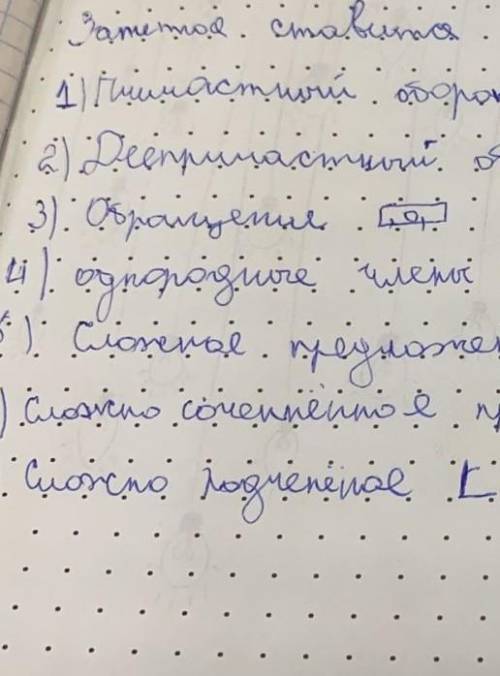 Запетое ставится
1) Причастный оборот
2) Деепричастный об
3) Обращение ,о,
4) однородные члены
5) Сложное предложен
) Сложно сочененное пр
Сложно подчененое [